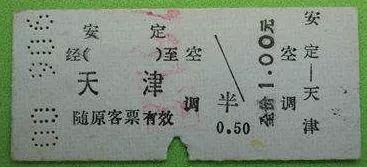 安定
经( )至空调
天津
随原客票有效
半
0.50
全价1.00元
空调
安定—天津